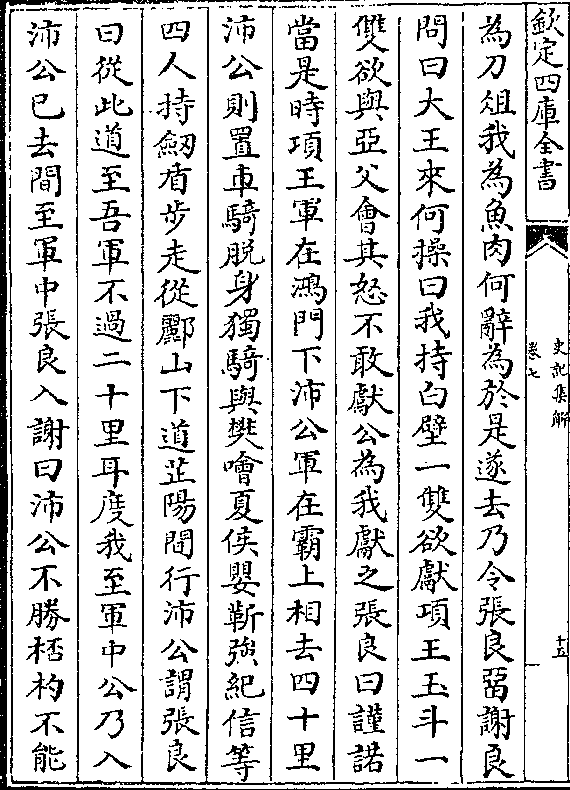 欽定四庫全書
史記集解
卷七
十五
為刀俎我為魚肉何辭為於是遂去乃令張良畱謝良
問曰大王來何操曰我持白璧一雙欲獻項王玉斗一
雙欲與亞父會其怒不敢獻公為我獻之張良曰謹諾
當是時項王軍在鴻門下沛公軍在霸上相去四十里
沛公則置車騎脫身獨騎與樊噲夏侯嬰靳強紀信等
四人持劒盾步走從酈山下道芷陽間行沛公謂張良
曰從此道至吾軍不過二十里耳度我至軍中公乃入
沛公已去間至軍中張良入謝曰沛公不勝桮杓不能